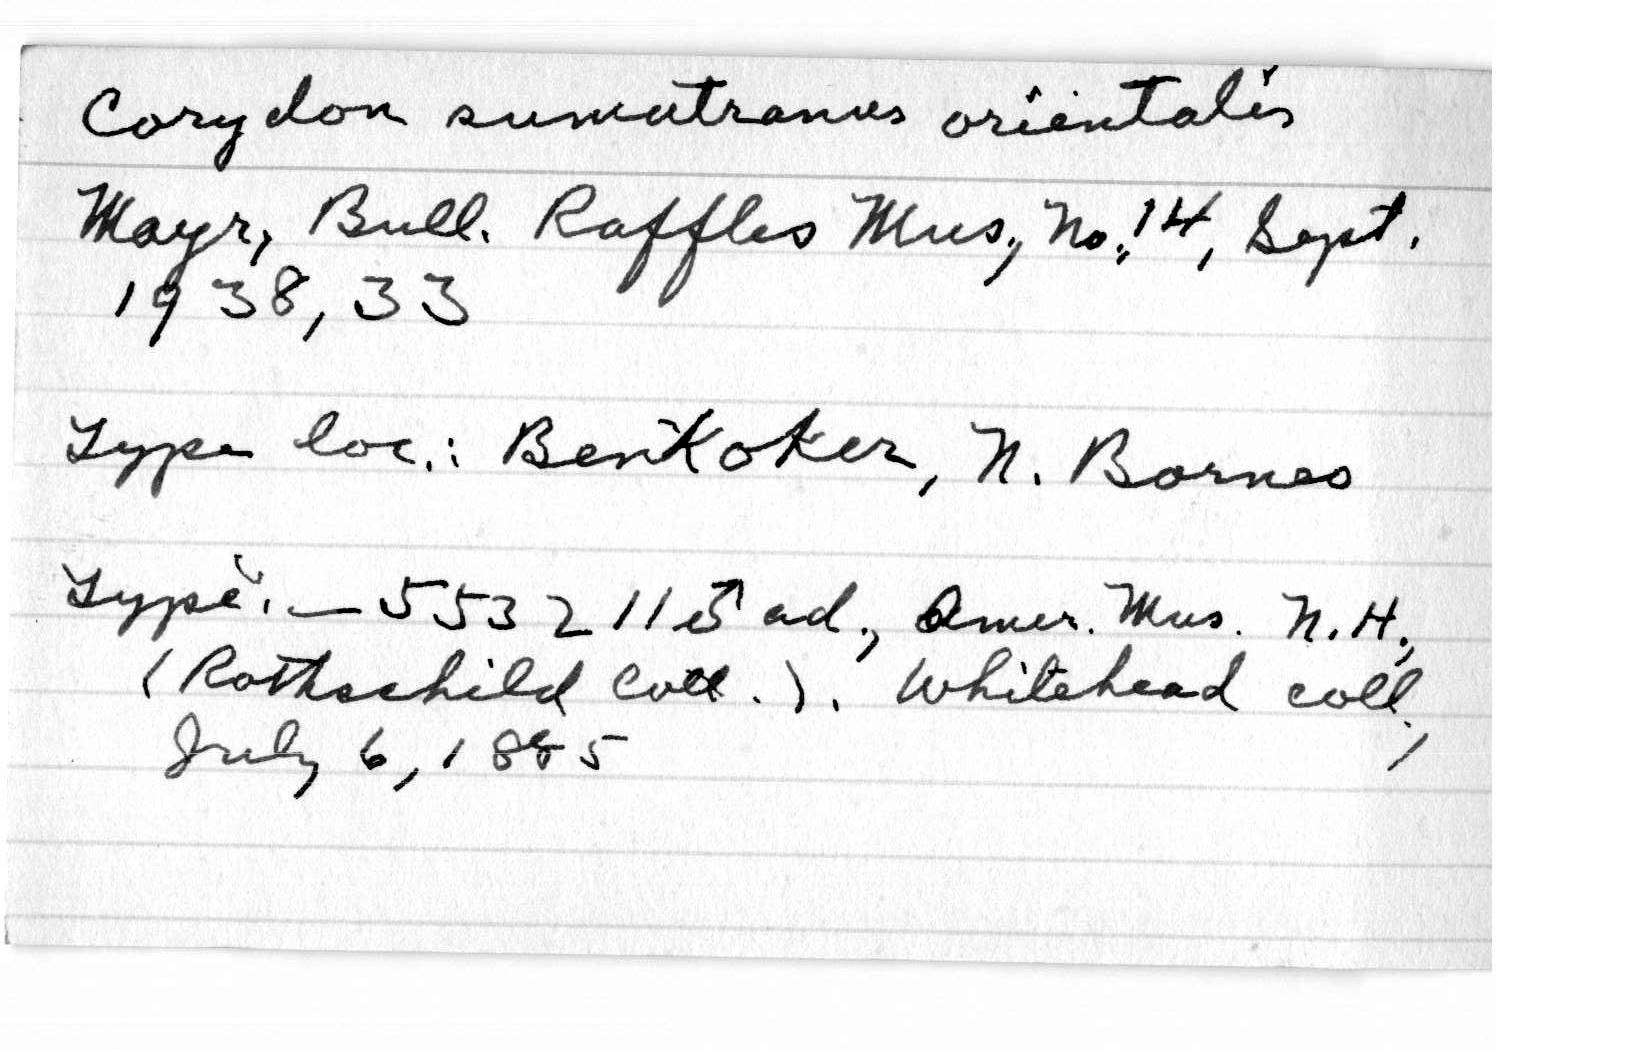 Corydon sumatranus orientalis
Mayr, Bull. Raffles Mus., No. 14, Sept.
1938, 33
Type loc.: Benkoker, N. Borneo
Type. — 553211 ♂ ad., Amer. Mus. N. H.,
(Rothschild Coll.). Whitehead coll.,
July 6, 1885